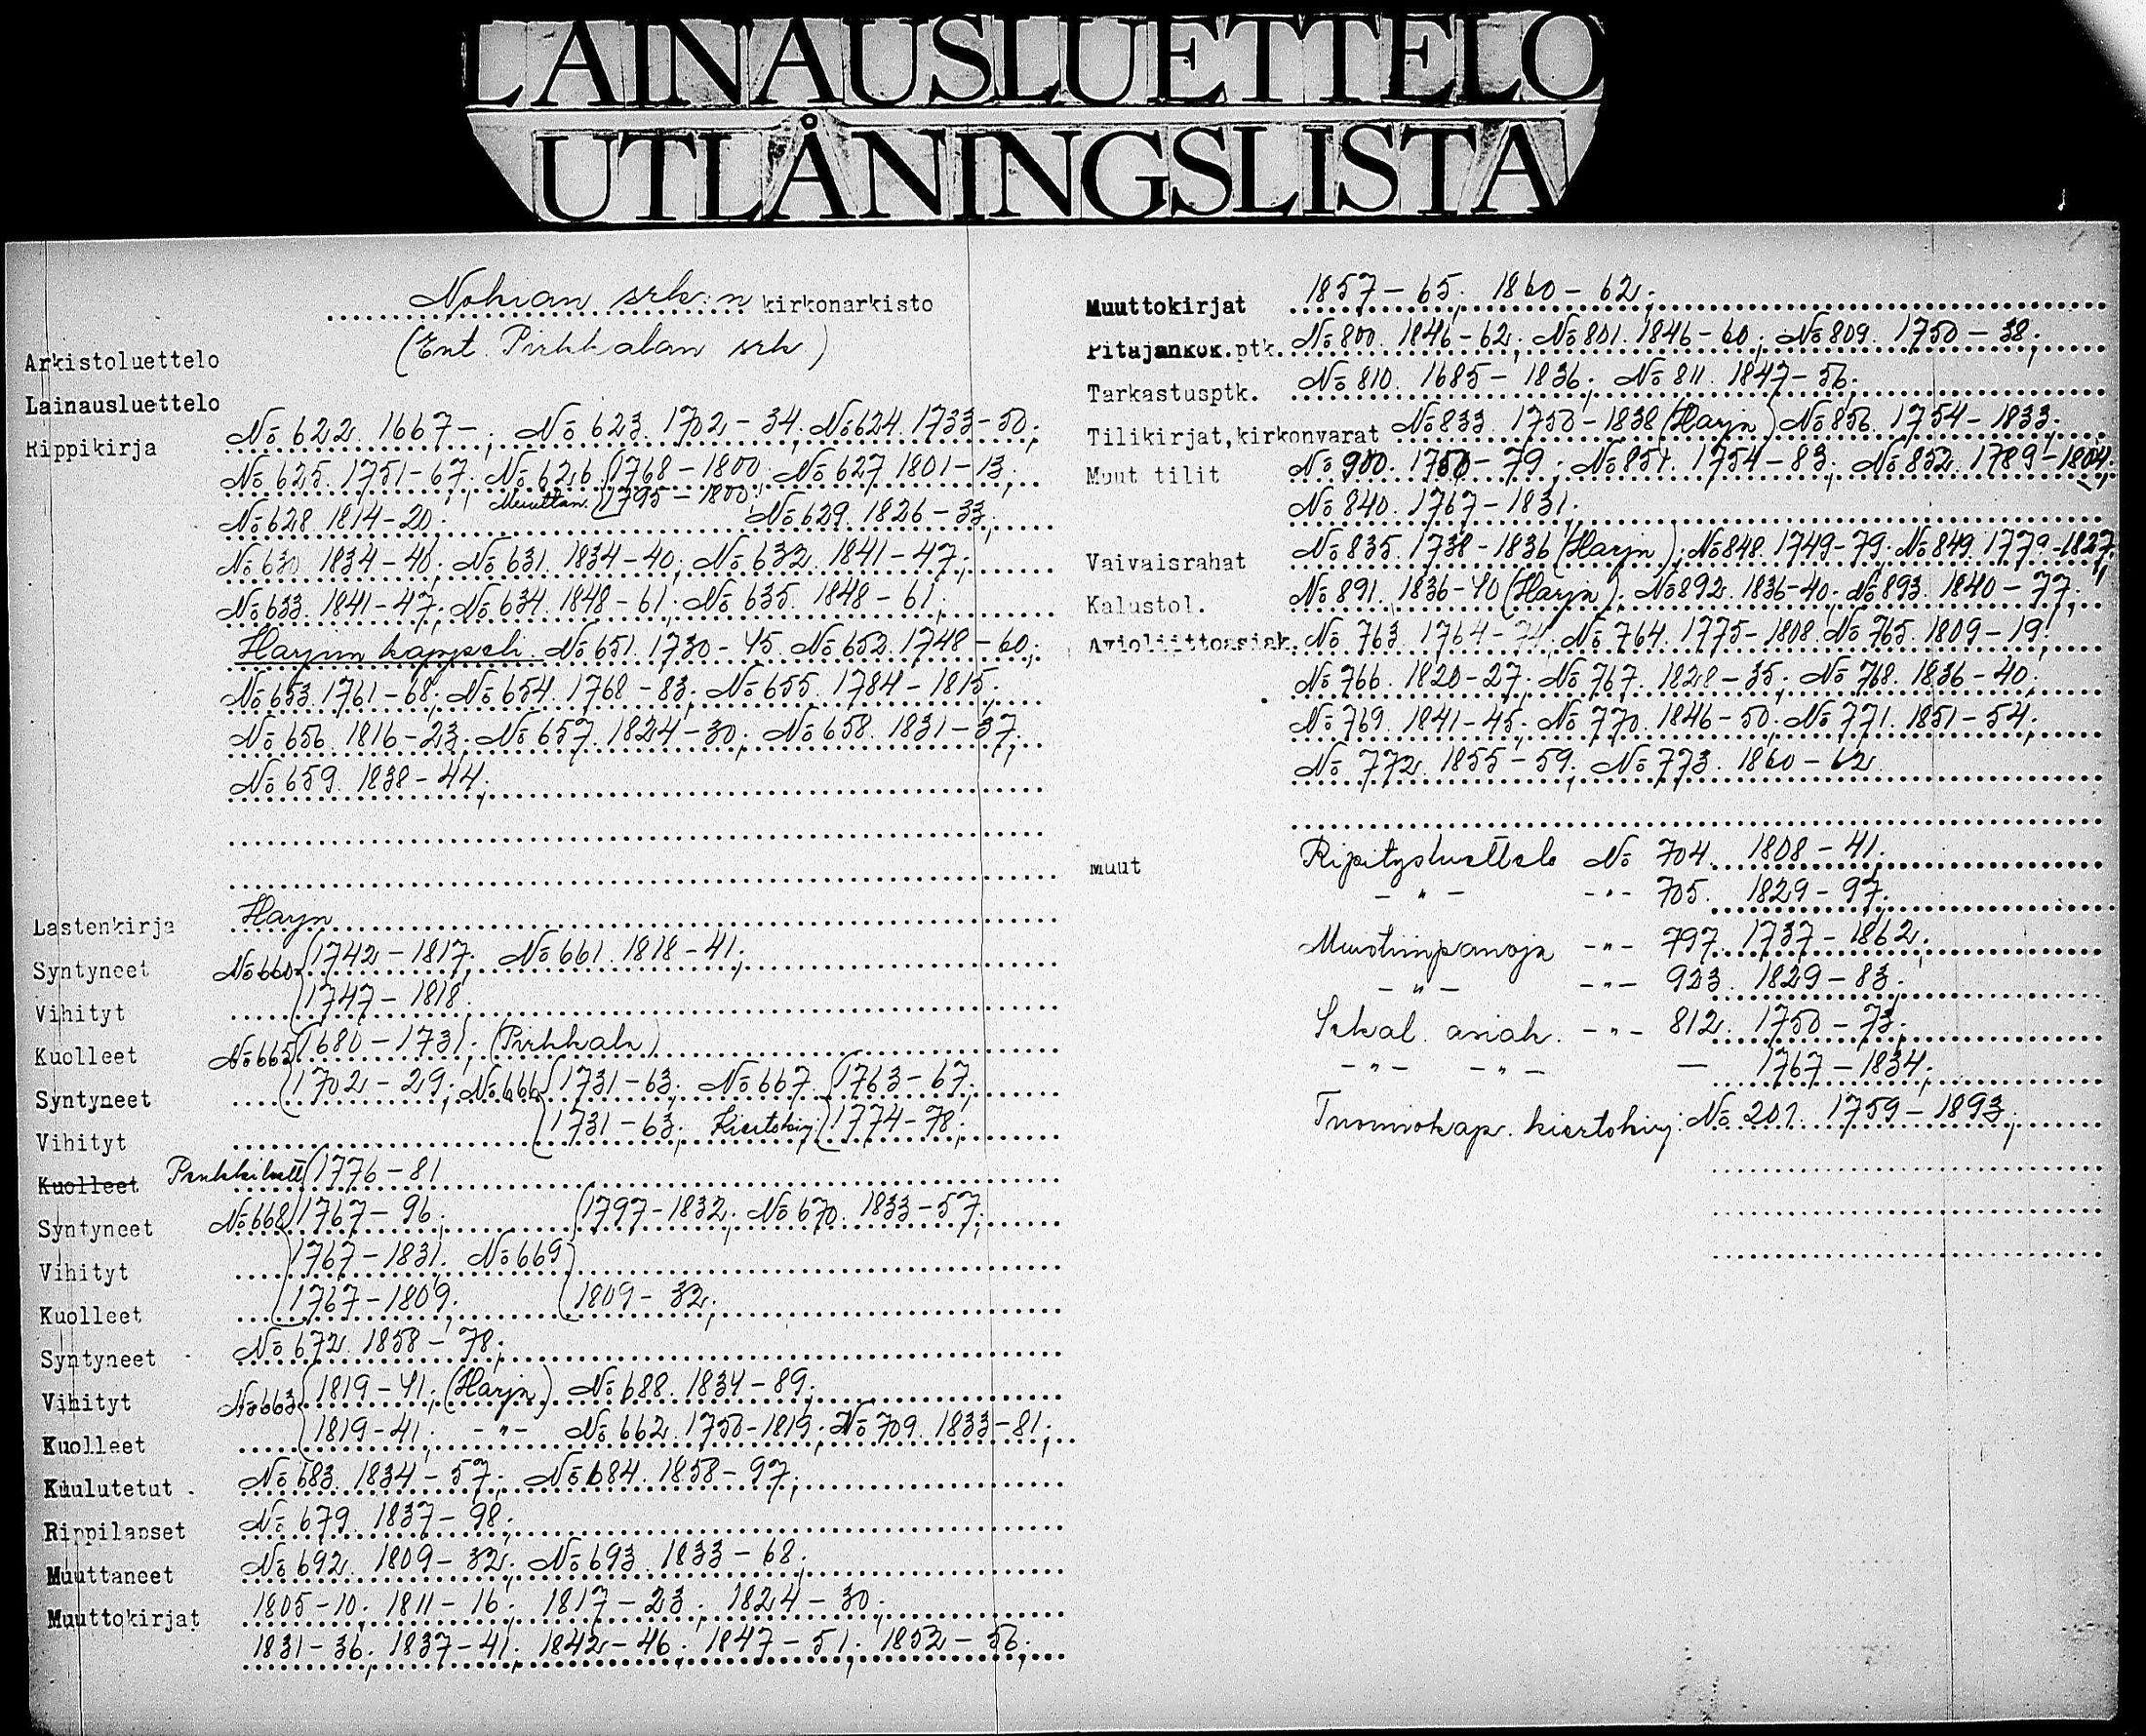 LAINAUSLUETTELO
UTLÅNINGSLISTA
Nokian srk:n kirkonarkisto
(Ent. Pirkkalan srk.)
Arkistoluettelo
Lainausluettelo
Rippikirja No 622. 1667-; No 623. 1702-34; No 624. 1733-50;
No 625. 1751-67; No 626. (1768-1800; No 627. 1801-13;
Muuttan. (1795-1800;
No 628. 1814-20; No 629. 1826-33;
No 630. 1834-40; No 631. 1834-40; No 632. 1841-47;
No 633. 1841-47; No 634. 1848-61; No 635. 1848-61;
Harjun kappeli. No 651. 1730-45. No 652. 1748-60;
No 653. 1761-68; No 654. 1768-83; No 655. 1784-1815;
No 656. 1816-23; No 657. 1824-30; No 658. 1831-37;
No 659. 1838-44;
Lastenkirja Harju
Syntyneet No 660 (1742-1817; No 661. 1818-41;
Vihityt (1747-1818;
Kuolleet No 665 (1680-1731; (Pirkkala)
Syntyneet (1702-29; No 666 (1731-63; No 667. (1763-67;
Vihityt (1731-63; Kiertokirj. (1774-78;
Kuolleet Penkkiluett. (1776-81
Syntyneet No 668 (1767-96; (1797-1832; No 670. 1833-57;
Vihityt (1767-1831. No 669
Kuolleet (1767-1809; (1809-32;
Syntyneet No 672. 1858-78;
Vihityt No 663 (1819-41; (Harju) No 688. 1834-89;
Kuolleet (1819-41; -"- No 662. 1750-1819; No 709. 1833-81;
Kuulutetut No 683. 1834-57; No 684. 1858-97;
Rippilapset No 679. 1837-98;
Muuttaneet No 692. 1809-32; No 693. 1833-68;
Muuttokirjat 1805-10; 1811-16; 1817-23; 1824-30;
1831-36; 1837-41; 1842-46; 1847-51; 1852-56;
Muuttokirjat 1857-65; 1860-62;
Pitäjänkok.ptk. No 800. 1846-62; No 801. 1846-60; No 809. 1750-38;
Tarkastusptk. No 810. 1685-1836; No 811. 1847-56;
Tilikirjat, kirkonvarat No 833. 1750-1838 (Harju) No 856. 1754-1833;
Muut tilit No 900. 1750-79; No 851. 1754-83; No 852. 1789-1804;
No 840. 1767-1831;
Vaivaisrahat No 835. 1738-1836 (Harju); No 848. 1749-79; No 849. 1779-1827;
Kalustol. No 891. 1836-40 (Harju); No 892. 1836-40; No 893. 1840-77;
Avioliittoasiak. No 763. 1764-74; No 764. 1775-1808. No 765. 1809-19;
No 766. 1820-27; No 767. 1828-35; No 768. 1836-40;
No 769. 1841-45; No 770. 1846-50; No 771. 1851-54;
No 772. 1855-59; No 773. 1860-62
Muut Ripitysluettelo No 704. 1808-41;
-"- -"- 705. 1829-97;
Muistiinpanoja -"- 797. 1737-1862;
-"- -"- 923. 1829-83;
Sekal. asiak. -"- 812. 1750-73;
-"- -"- - 1767-1834;
Tuomiokap. kiertokirj: No 201. 1759-1893;